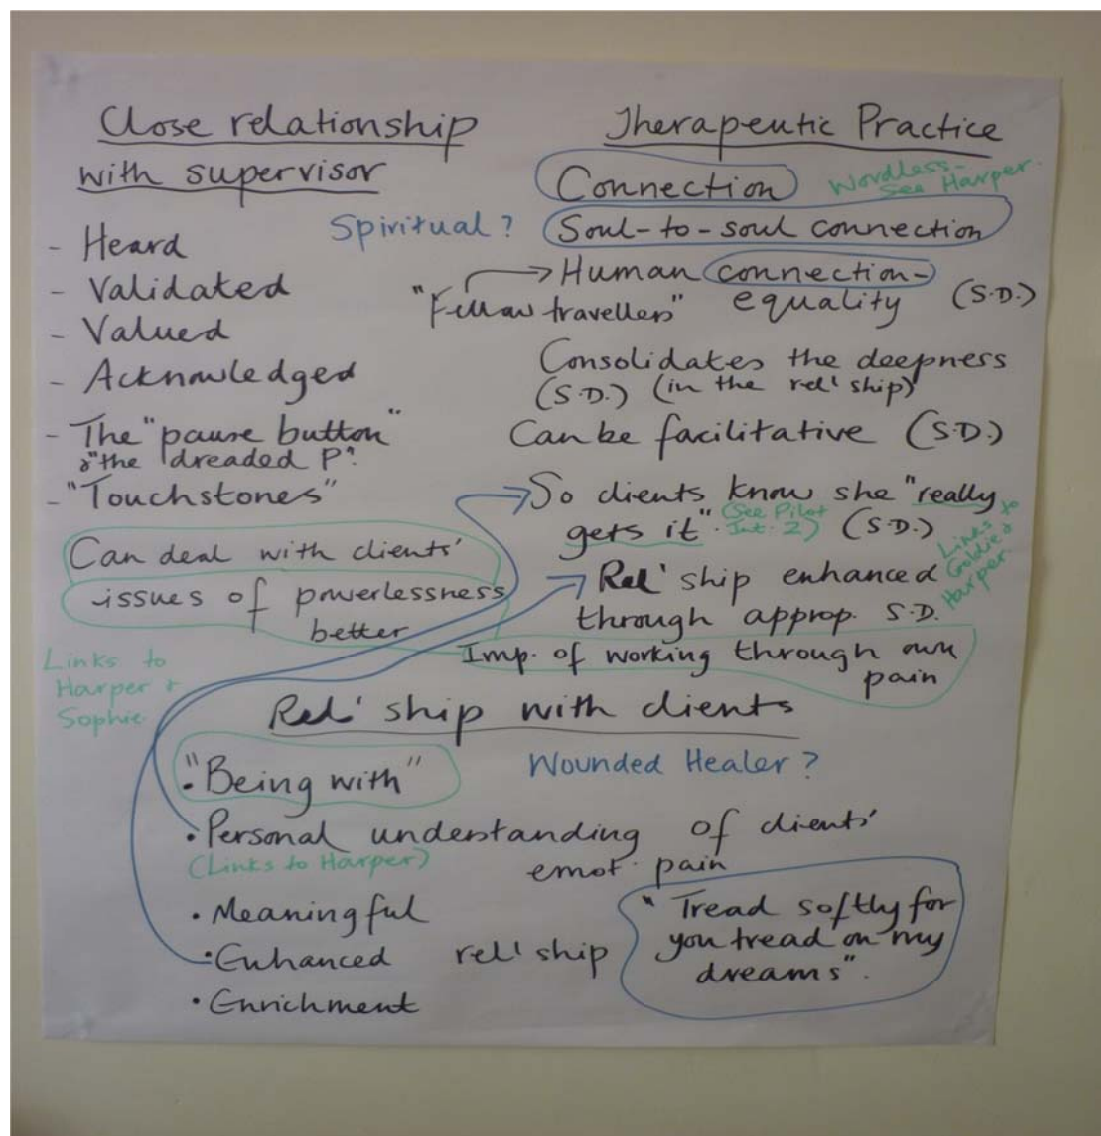 Close relationship
with supervisor
- Heard
- Validated
- Valued
- Acknowledged
- The "pause button"
& "the dreaded P".
- "Touchstones"
Can deal with clients'
issues of powerlessness
better
Links to
Harper +
Sophie
Therapeutic Practice
Connection
Wordless -
See Harper.
Spiritual?
Soul-to-soul connection
Human connection -
equality (S.D.)
"Fellow travellers"
Consolidates the deepness
(S.D.) (in the rel'ship)
Can be facilitative (S.D.)
So clients know she "really
gets it". (S.D.)
(See Pilot
Int. 2)
Links to
Goldie &
Harper
Rel'ship enhanced
through approp. S.D.
Imp. of working through own
pain
Rel'ship with clients
• "Being with"
Wounded Healer?
• Personal understanding of clients'
emot. pain
(Links to Harper)
• Meaningful
• Enhanced rel'ship
• Enrichment
"Tread softly for
you tread on my
dreams".